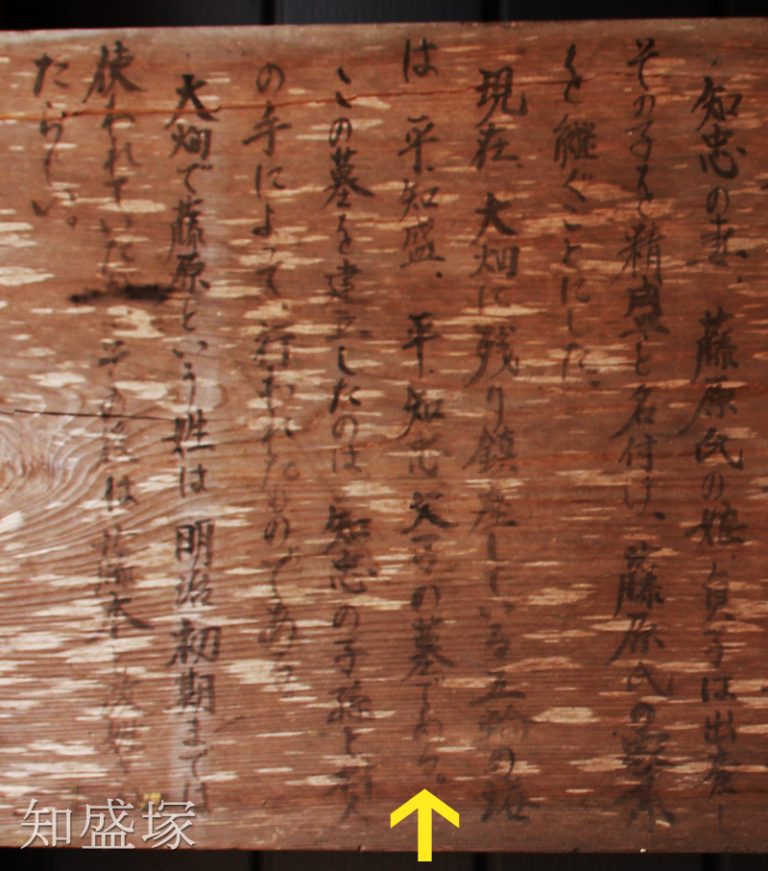 知忠の妻、藤原氏の娘貞子は出産し
その子を精盛と名付け、藤原氏の
を継ぐことにした。
現在、大畑に残り鎮座している五輪の
は平知盛、平知忠父子の墓である。
この墓を建立したのは知忠の子孫と
の手によって、行われたものである
大畑で藤原という姓は明治初期までは
使われていた その後は 本と
たらしい。
知盛塚